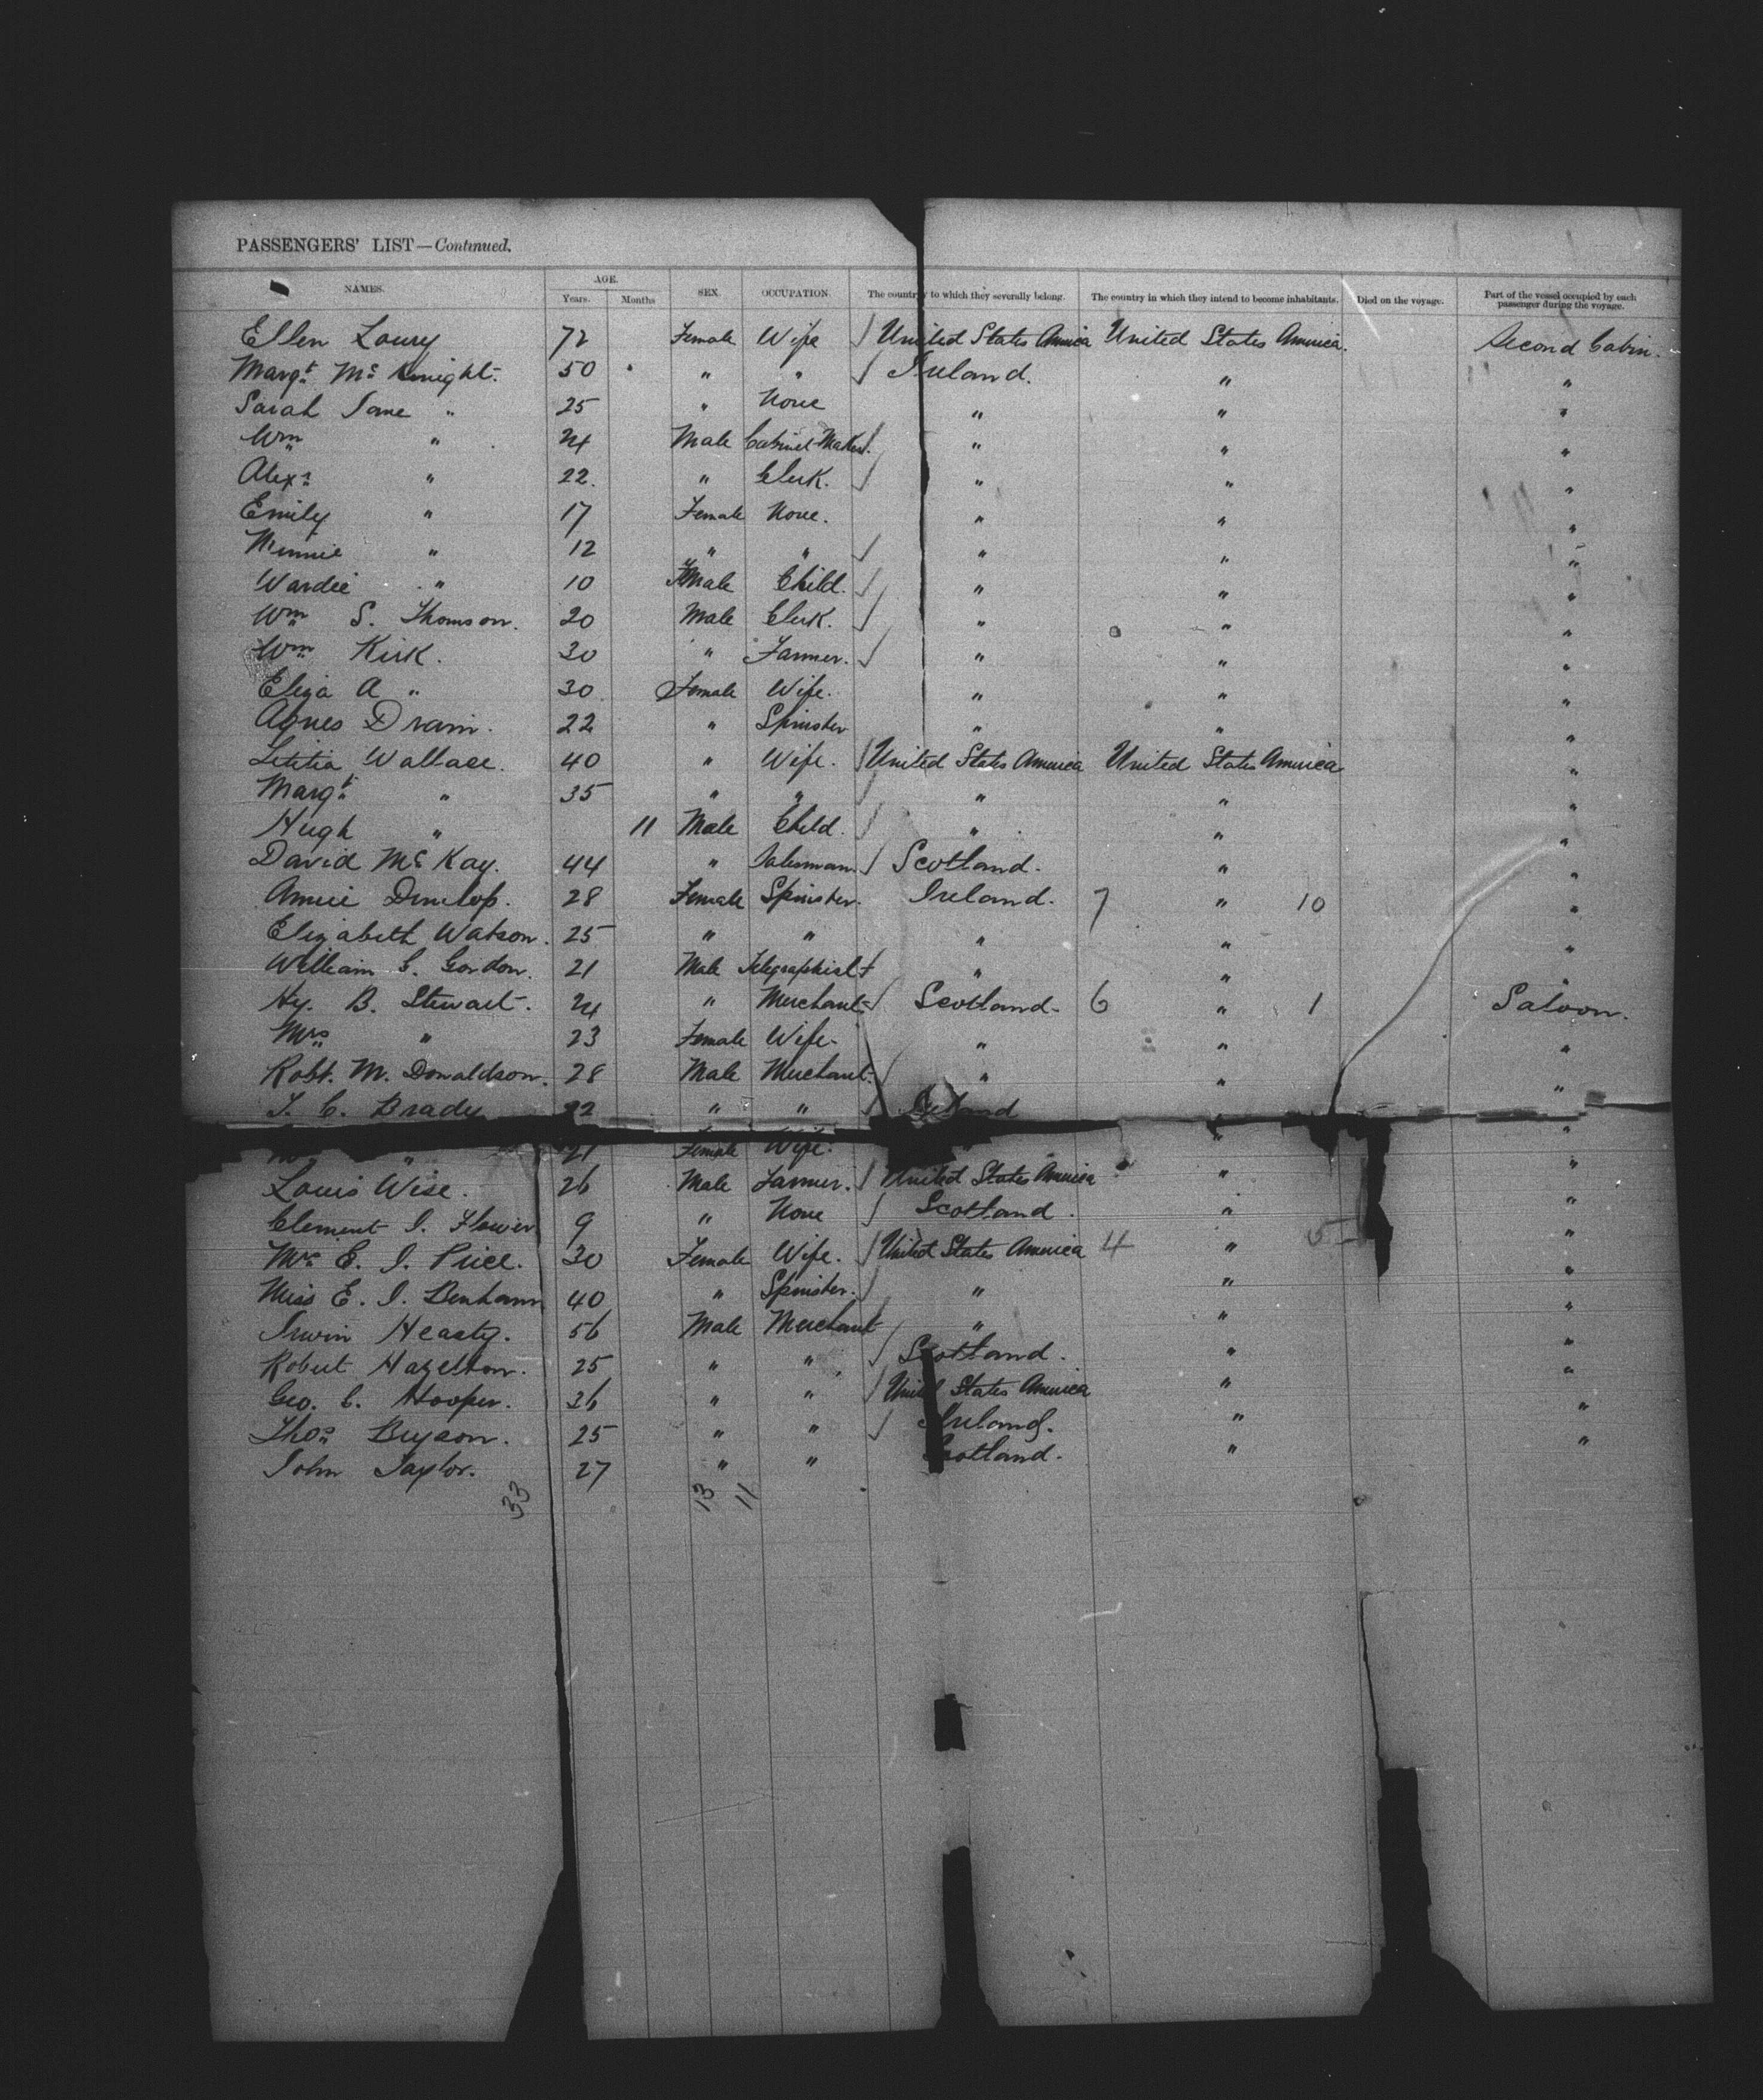 PASSENGERS' LIST—Continued.
NAMES. AGE. Years. Months SEX. OCCUPATION. The country to which they severally belong. The country in which they intend to become inhabitants. Died on the voyage. Part of the vessel occupied by each passenger during the voyage.
Ellen Lowry 72 Female Wife United States America United States America. Second Cabin.
Margt. Mc Knight. 50 " " Ireland. " "
Sarah Jane " 25 " None " " "
Wm " 24 Male Cabinet Maker. " " "
Alexr " 22. " Clerk. " " "
Emily " 17 Female None. " " "
Minnie " 12 " " " " "
Wardie " 10 Male Child. " " "
Wm S. Thomson. 20 Male Clerk. " " "
Wm Kirk. 30 " Farmer. " " "
Eliza A " 30 Female Wife. " " "
Agnes Drain. 22 " Spinster " " "
Letitia Wallace. 40 " Wife. United States America United States America "
Margt " 35 " " " " "
Hugh " 11 Male Child. " " "
David Mc Kay. 44 " Salesman. Scotland. " "
Annie Dunlop. 28 Female Spinster. Ireland. 7 " 10 "
Elizabeth Watson. 25 " " " " "
William G. Gordon. 21 Male Telegraphist " " "
Hy. B. Stewart. 24 " Merchant Scotland. 6 " 1 Saloon.
Mrs " 23 Female Wife. " " "
Robt. M. Donaldson. 28 Male Merchant. " " "
J. C. Brady 22 " " Ireland
" 21 Female Wife. " "
Louis Wise. 26 Male Farmer. United States America " "
Clement J. Flower 9 " None Scotland. " "
Mrs E. J. Price. 30 Female Wife. United States America 4 " 5 "
Miss E. J. Benham 40 " Spinster. " " "
Irwin Heasty. 56 Male Merchant " " "
Robert Hazelton. 25 " " Scotland. " "
Geo. C. Hooper. 36 " " United States America " "
Thos Bryson. 25 " " Ireland. " "
John Taylor. 27 " " Scotland. " "
33 13 11